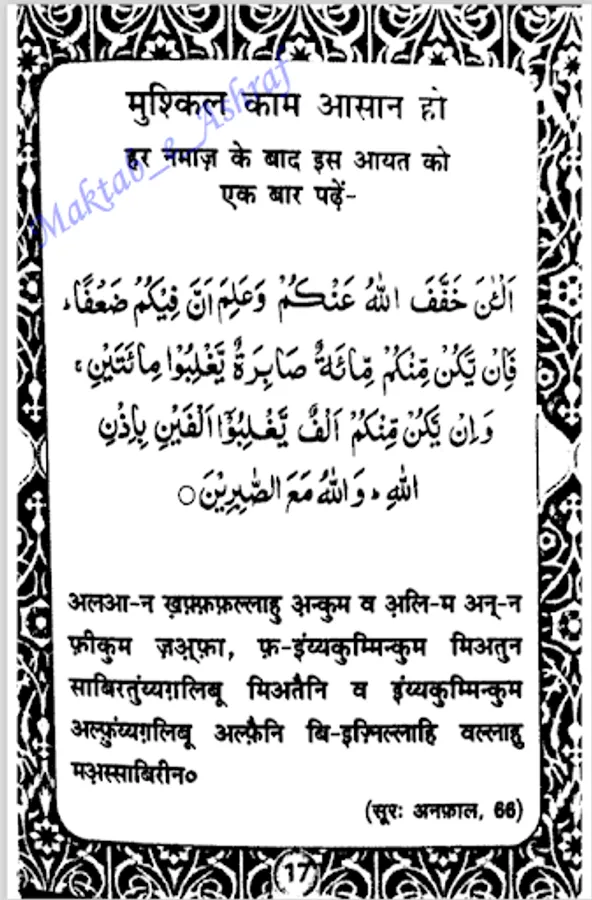 मुश्किल काम आसान हो
हर नमाज़ के बाद इस आयत को
एक बार पढ़ें-
Maktab_e_Ashraf
اَلْـٰٔنَ خَفَّفَ اللّٰهُ عَنْكُمْ وَعَلِمَ اَنَّ فِيْكُمْ ضَعْفًا ؕ
فَاِنْ يَّكُنْ مِّنْكُمْ مِّائَةٌ صَابِرَةٌ يَّغْلِبُوْا مِائَتَيْنِ ۚ
وَاِنْ يَّكُنْ مِّنْكُمْ اَلْفٌ يَّغْلِبُوْٓا اَلْفَيْنِ بِاِذْنِ
اللّٰهِ ؕ وَاللّٰهُ مَعَ الصّٰبِرِيْنَ ○
अलआ-न ख़फ़्फ़फ़ल्लाहु अ़न्कुम व अ़लि-म अन्-न
फ़ीकुम ज़अ़्फ़ा, फ़-इंय्यकुम्मिन्कुम मिअतुन
साबिरतुंय्यग़लिबू मिअतैनि व इंय्यकुम्मिन्कुम
अल्फ़ुंय्यग़लिबू अल्फ़ैनि बि-इज़्निल्लाहि वल्लाहु
मअ़स्साबिरीन०
(सूरः अनफ़ाल, 66)
17